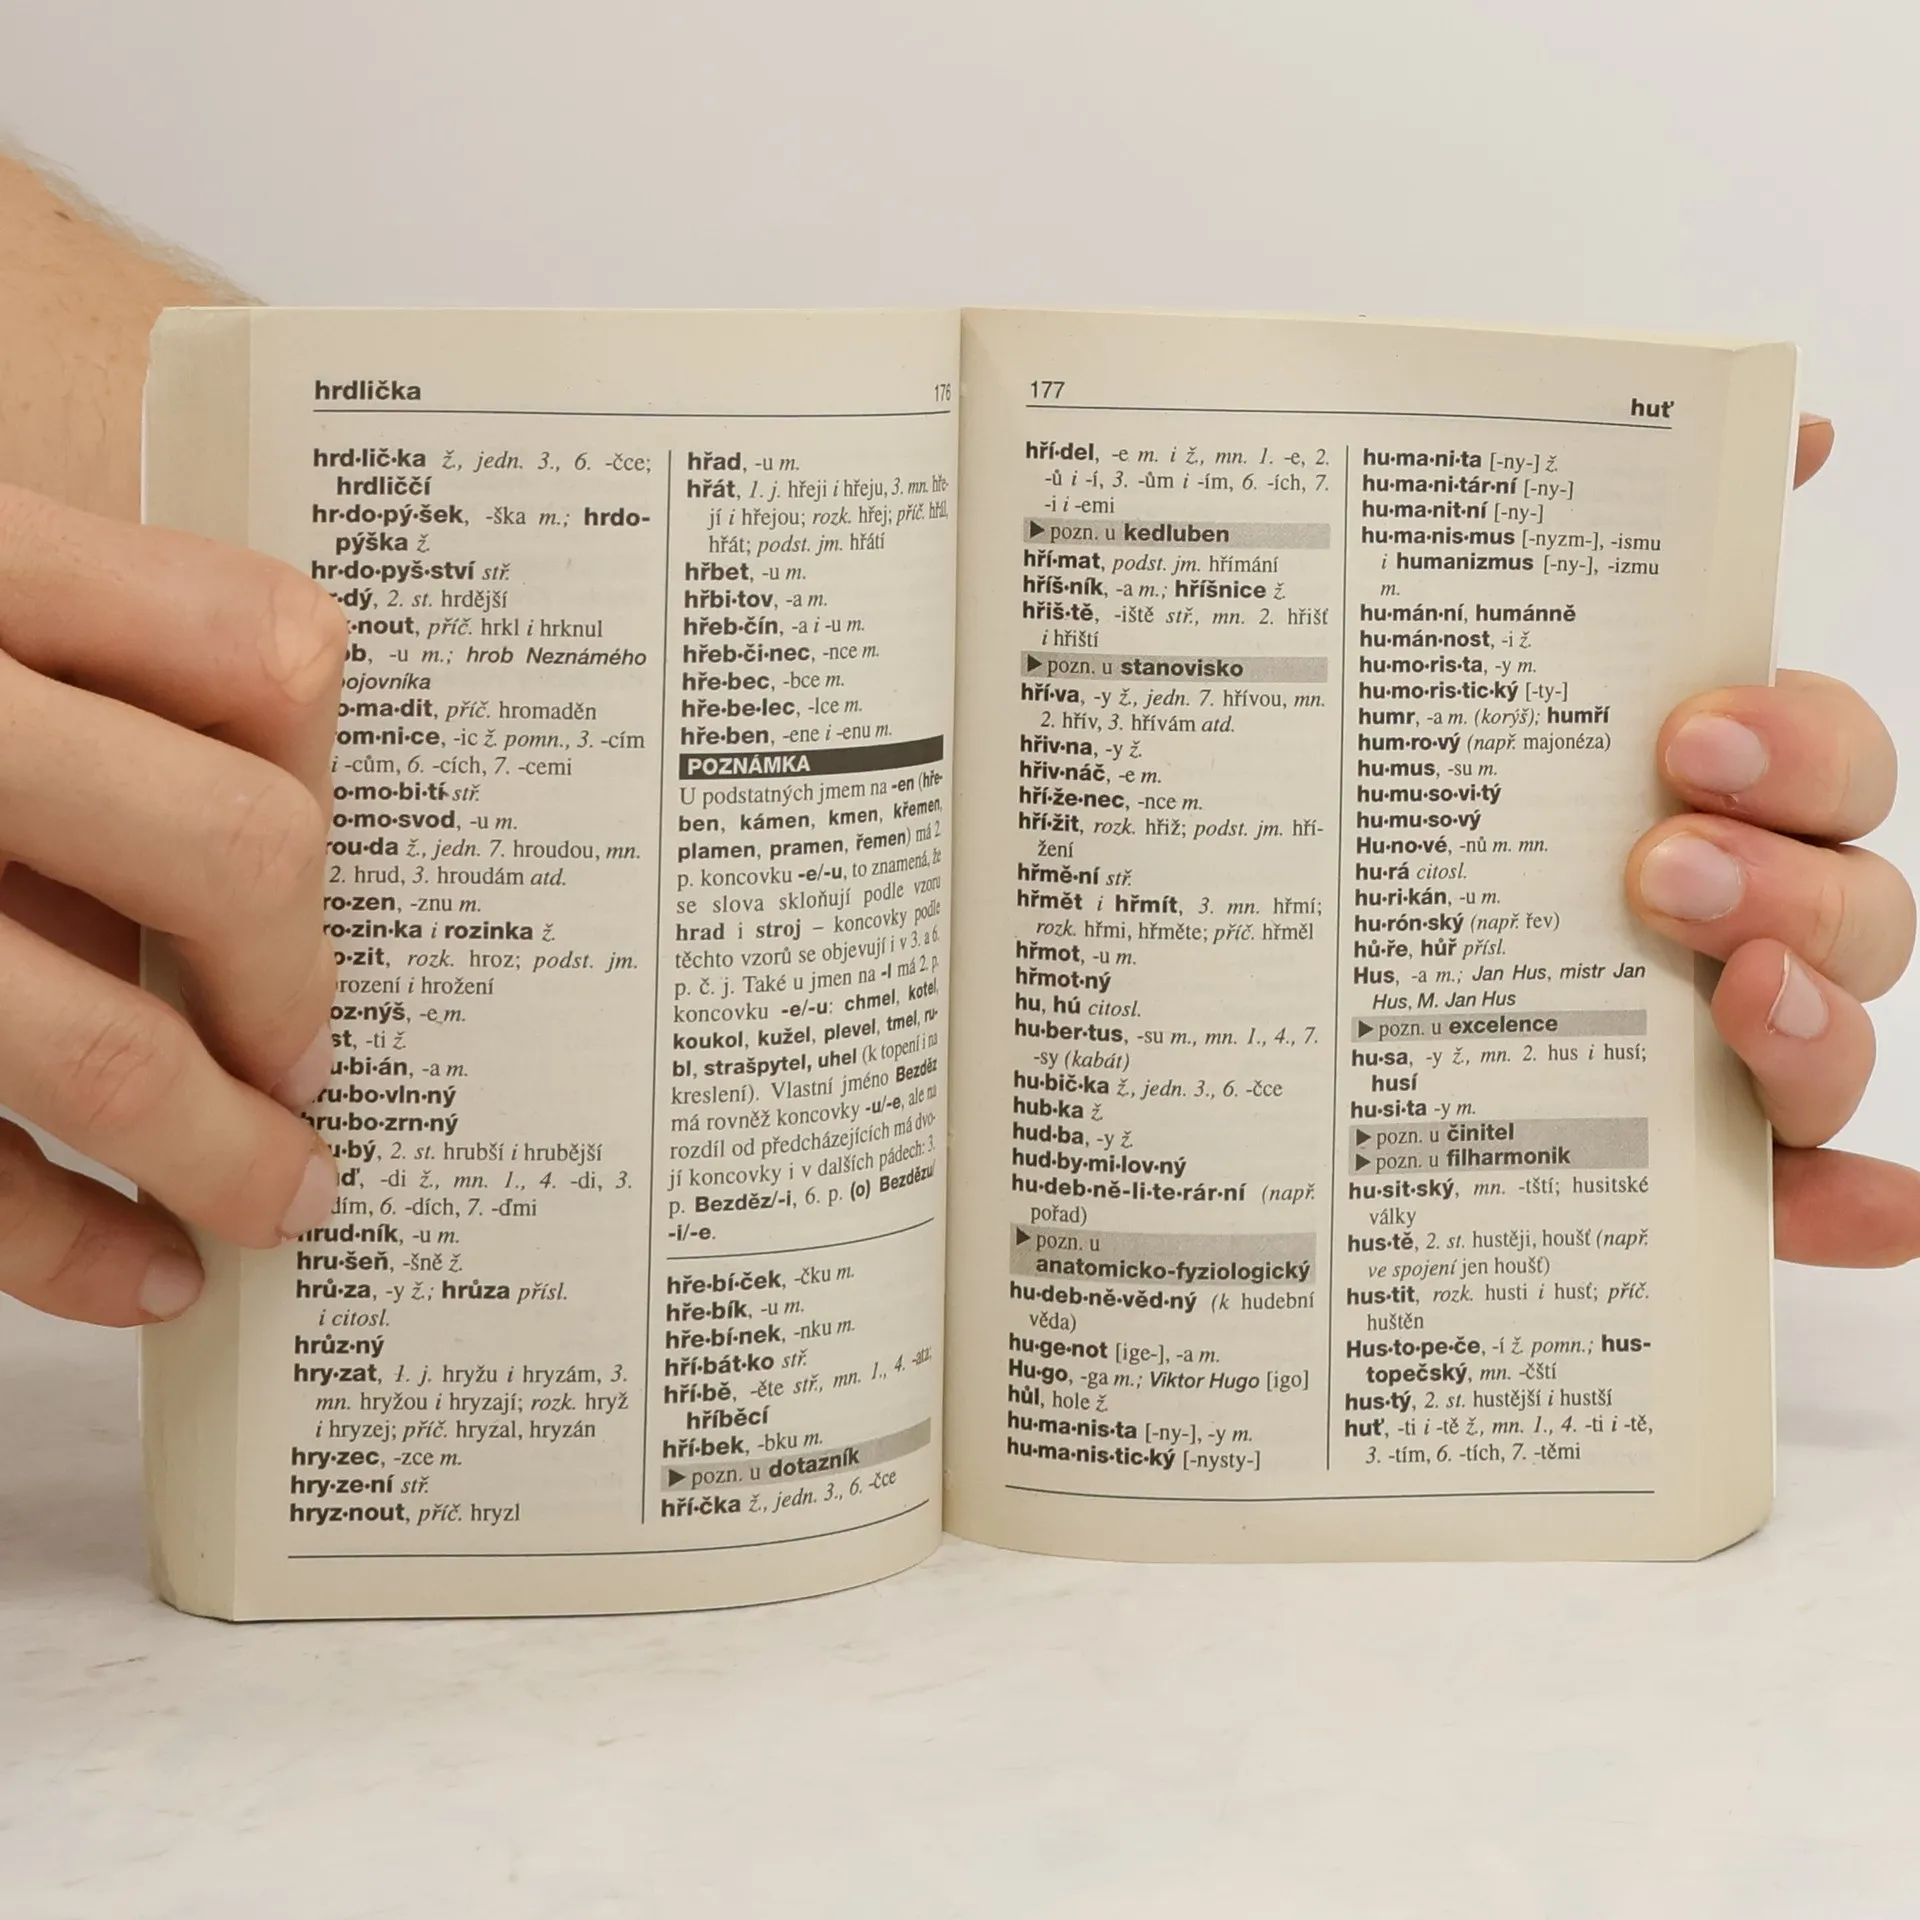 hrdlička
176
hrd•lič•ka ž., jedn. 3., 6. -čce;
hrdliččí
hr•do•pý•šek, -ška m.; hrdo-
pýška ž.
hr•do•pyš•ství stř.
2. st. hrdější
příč. hrkl i hrknul
-u m.; hrob Neznámého
příč. hromaděn
-ic ž. pomn., 3. -cím
i -cům, 6. -cích, 7. -cemi
stř.
-u m.
ž., jedn. 7. hroudou, mn.
2. hrud, 3. hroudám atd.
-znu m.
i rozinka ž.
rozk. hroz; podst. jm.
i hrožení
-e m.
-ti ž.
-a m.
2. st. hrubší i hrubější
-di ž., mn. 1., 4. -di, 3.
6. -dích, 7. -ďmi
-u m.
hru•šeň, -šně ž.
hrů•za, -y ž.; hrůza přísl.
i citosl.
hrůz•ný
hry•zat, 1. j. hryžu i hryzám, 3.
mn. hryžou i hryzají; rozk. hryž
i hryzej; příč. hryzal, hryzán
hry•zec, -zce m.
hry•ze•ní stř.
hryz•nout, příč. hryzl
hřad, -u m.
hřát, 1. j. hřeji i hřeju, 3. mn. hře-
jí i hřejou; rozk. hřej; příč. hřál,
hřát; podst. jm. hřátí
hřbet, -u m.
hřbi•tov, -a m.
hřeb•čín, -a i -u m.
hřeb•či•nec, -nce m.
hře•bec, -bce m.
hře•be•lec, -lce m.
hře•ben, -ene i -enu m.
POZNÁMKA
U podstatných jmen na -en (hře-
ben, kámen, kmen, křemen,
plamen, pramen, řemen) má 2.
p. koncovku -e/-u, to znamená, že
se slova skloňují podle vzoru
hrad i stroj – koncovky podle
těchto vzorů se objevují i v 3. a 6.
p. č. j. Také u jmen na -l má 2. p.
koncovku -e/-u: chmel, kotel,
koukol, kužel, plevel, tmel, ru-
bl, strašpytel, uhel (k topení i na
kreslení). Vlastní jméno Bezděz
má rovněž koncovky -u/-e, ale na
rozdíl od předcházejících má dvo-
jí koncovky i v dalších pádech: 3.
p. Bezděz/-i, 6. p. (o) Bezdězu/
-i/-e.
hře•bí•ček, -čku m.
hře•bík, -u m.
hře•bí•nek, -nku m.
hří•bát•ko stř.
hří•bě, -ěte stř., mn. 1., 4. -ata;
hříběcí
hří•bek, -bku m.
▶ pozn. u dotazník
hříč•ka ž., jedn. 3., 6. -čce
177
huť
hří•del, -e m. i ž., mn. 1. -e, 2.
-ů i -í, 3. -ům i -ím, 6. -ích, 7.
-i i -emi
▶ pozn. u kedluben
hří•mat, podst. jm. hřímání
hříš•ník, -a m.; hříšnice ž.
hřiš•tě, -iště stř., mn. 2. hřišť
i hřiští
▶ pozn. u stanovisko
hří•va, -y ž., jedn. 7. hřívou, mn.
2. hřív, 3. hřívám atd.
hřiv•na, -y ž.
hřiv•náč, -e m.
hří•že•nec, -nce m.
hří•žit, rozk. hřiž; podst. jm. hří-
žení
hřmě•ní stř.
hřmět i hřmít, 3. mn. hřmí;
rozk. hřmi, hřměte; příč. hřměl
hřmot, -u m.
hřmot•ný
hu, hú citosl.
hu•ber•tus, -su m., mn. 1., 4., 7.
-sy (kabát)
hu•bič•ka ž., jedn. 3., 6. -čce
hub•ka ž.
hud•ba, -y ž.
hud•by•mi•lov•ný
hu•deb•ně-li•te•rár•ní (např.
pořad)
▶ pozn. u
anatomicko-fyziologický
hu•deb•ně•věd•ný (k hudební
věda)
hu•ge•not [ige-], -a m.
Hu•go, -ga m.; Viktor Hugo [igo]
hůl, hole ž.
hu•ma•nis•ta [-ny-], -y m.
hu•ma•nis•tic•ký [-nysty-]
hu•ma•ni•ta [-ny-] ž.
hu•ma•ni•tár•ní [-ny-]
hu•ma•nit•ní [-ny-]
hu•ma•nis•mus [-nyzm-], -ismu
i humanizmus [-ny-], -izmu
m.
hu•mán•ní, humánně
hu•mán•nost, -i ž.
hu•mo•ris•ta, -y m.
hu•mo•ris•tic•ký [-ty-]
humr, -a m. (korýš); humří
hum•ro•vý (např. majonéza)
hu•mus, -su m.
hu•mu•so•vi•tý
hu•mu•so•vý
Hu•no•vé, -nů m. mn.
hu•rá citosl.
hu•ri•kán, -u m.
hu•rón•ský (např. řev)
hů•ře, hůř přísl.
Hus, -a m.; Jan Hus, mistr Jan
Hus, M. Jan Hus
▶ pozn. u excelence
hu•sa, -y ž., mn. 2. hus i husí;
husí
hu•si•ta -y m.
▶ pozn. u činitel
▶ pozn. u filharmonik
hu•sit•ský, mn. -tští; husitské
války
hus•tě, 2. st. hustěji, houšť (např.
ve spojení jen houšť)
hus•tit, rozk. husti i husť; příč.
huštěn
Hus•to•pe•če, -í ž. pomn.; hus-
topečský, mn. -čští
hus•tý, 2. st. hustější i hustší
huť, -ti i -tě ž., mn. 1., 4. -ti i -tě,
3. -tím, 6. -tích, 7. -těmi